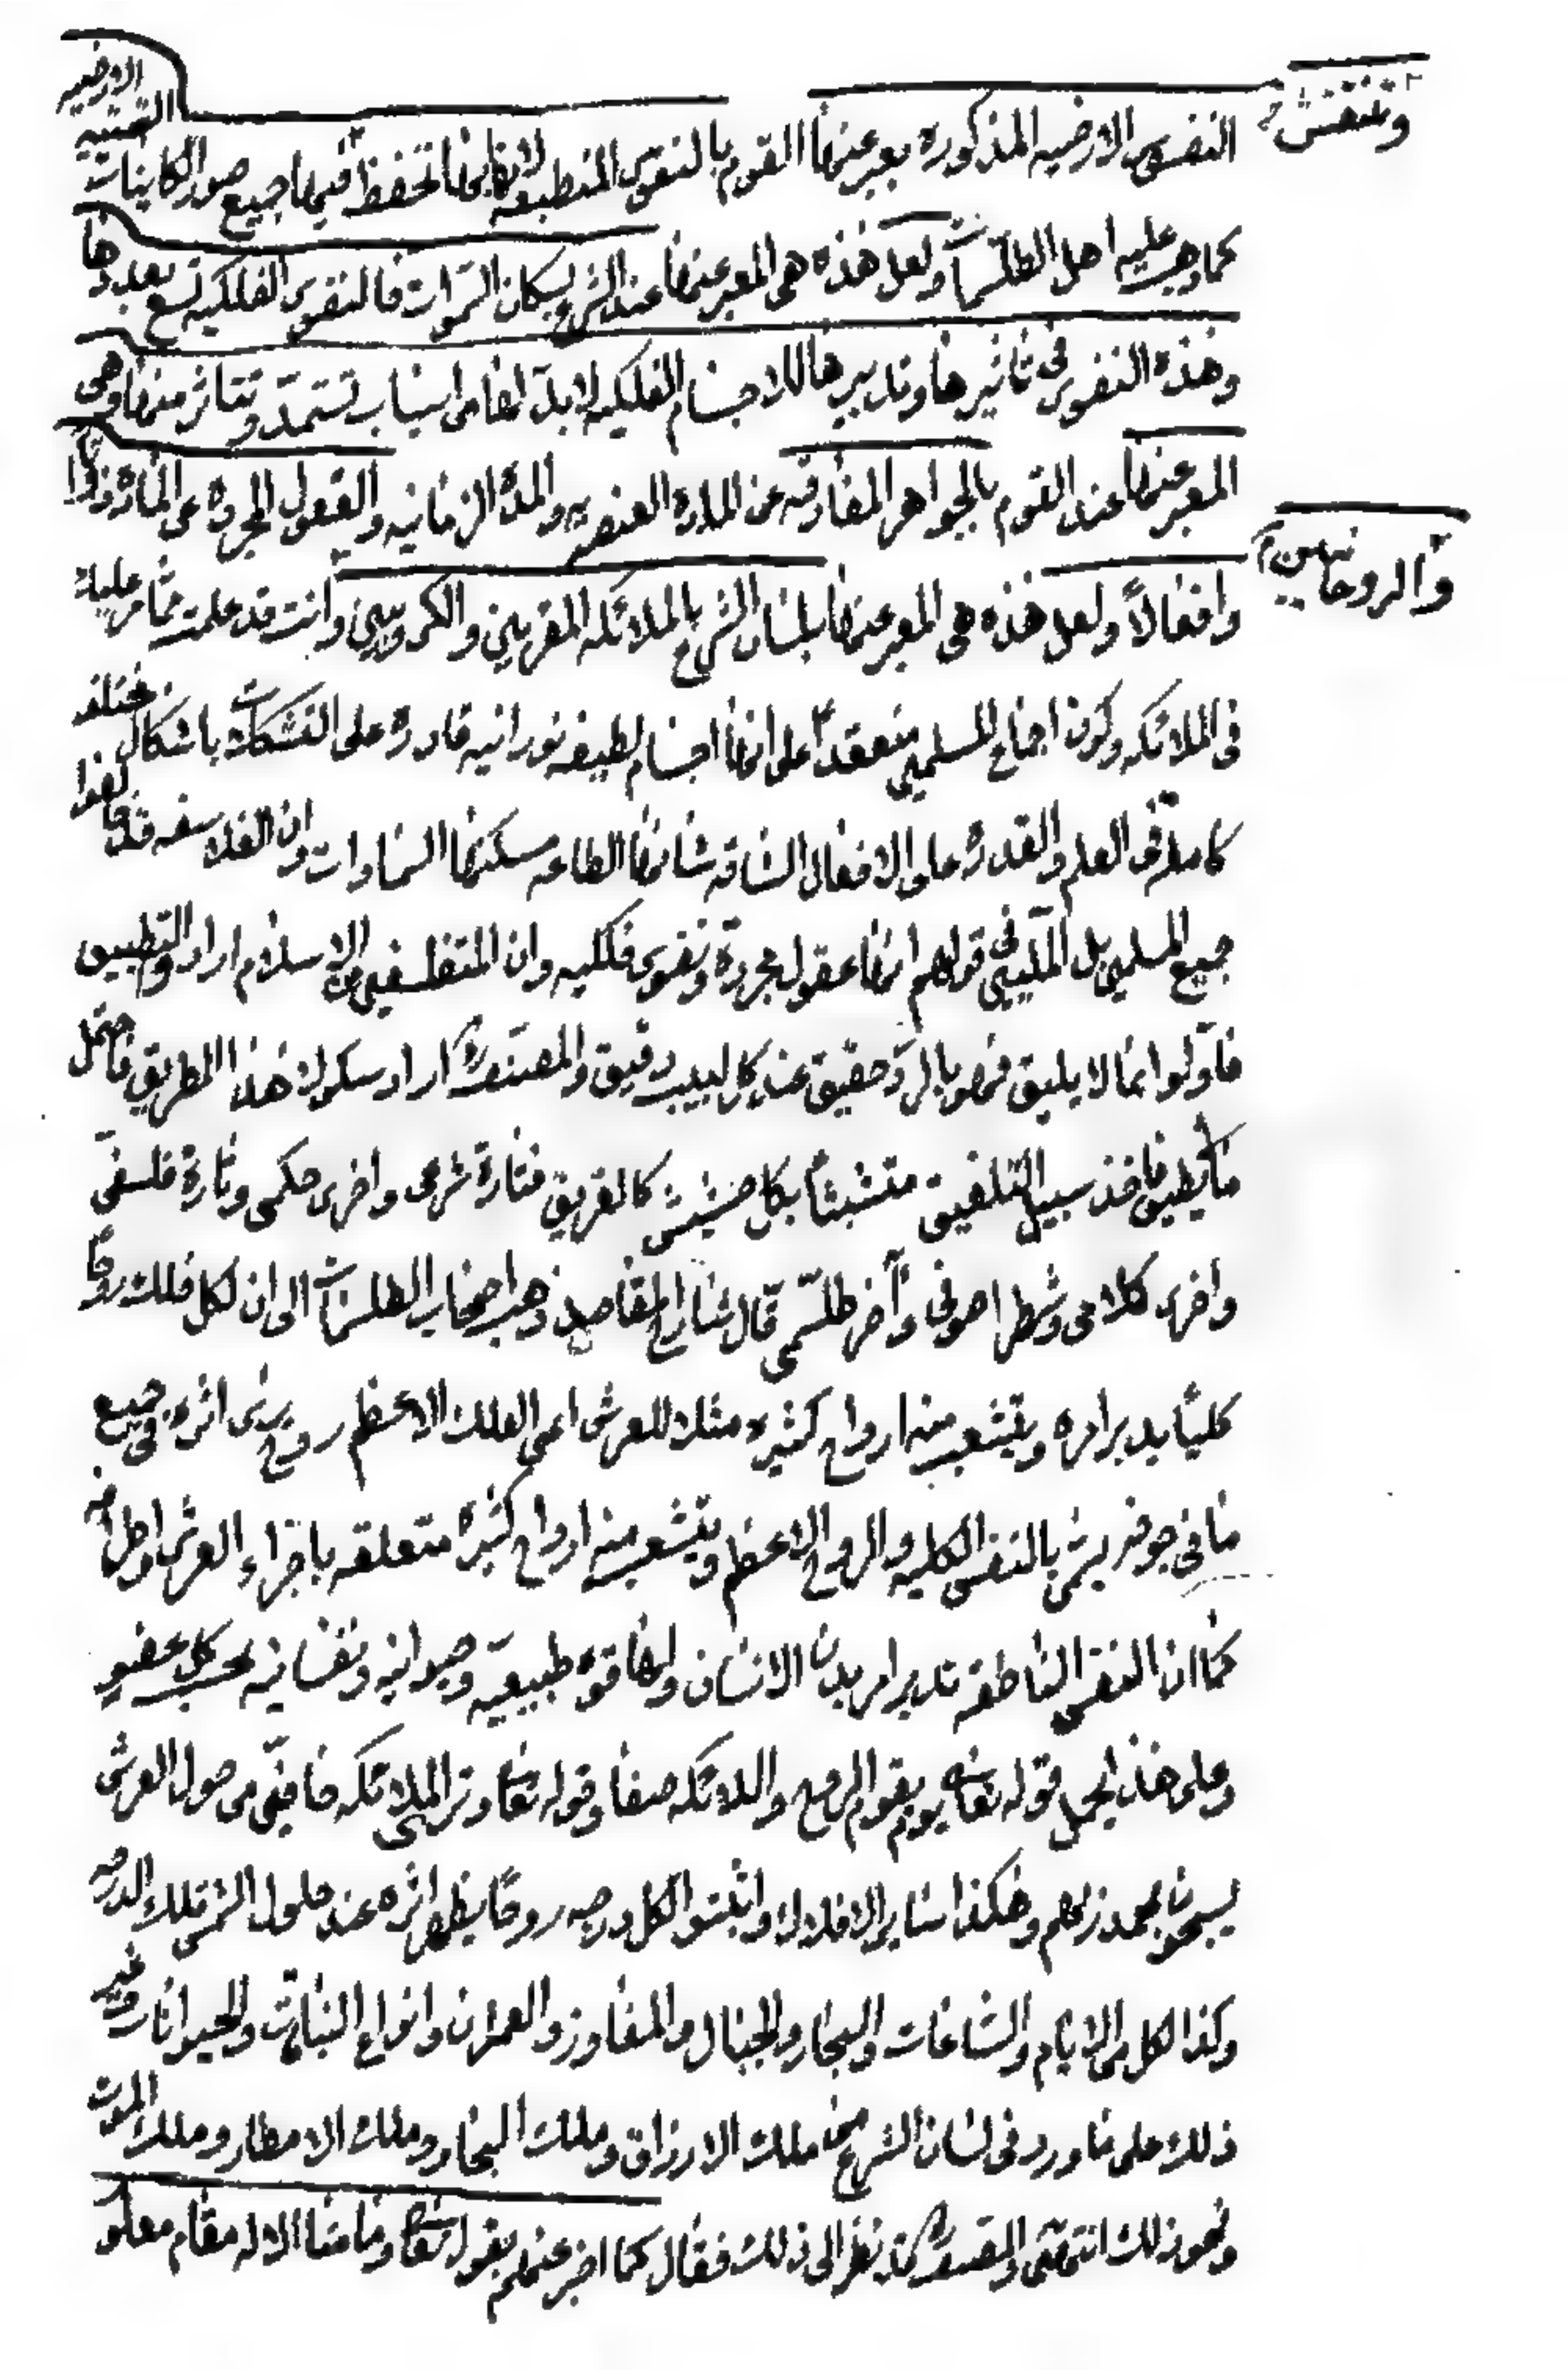 الارضيه
السفليه
وتنتقش
النفوس الارضيه المذكوره يعبر عنها القوم بالنفوس المنطبعه لانطباعها تحفظ فيها جميع صور الكاينات
كما ذهب عليه اهل الطلسمات ولعل هذه هى المعبر عنها عند الشرع بسكان السموات فالنفوس الفلكيه تسع بعددها
وهذه النفوس فى تاثيرها وتدبيرها للاجسام الفلكيه لابد لها من اسباب تستمد وتتاثر منها وهى
المعبر عنها عند القوم بالجواهر المفارقه عن الماده العنصريه والمدة الزمانيه والعقول المجرده عن المادة ذاتا
والروحانيين
وافعالاً ولعل هذه هى المعبر عنها بلسان الشرع بالملائكه المقربين والكروبيين وانت قد علمت مما مر عليك
فى الملائكه وكون اجماع المسلمين منعقداً على انها اجسام لطيفه نورانيه قادرة على التشكلات باشكال مختلفه
كاملة فى العلم والقدرة على الافعال الشاقه شانها الطاعه مسكنها السماوات وان الفلاسفه قد خالفوا
جميع المسلمين بل المليين فى قولهم انها عقول مجردة ونفوس فلكيه وان المتفلسفين من الاسلام ارادوا التطبيق
فاولوا بما لا يليق فهو بالرد حقيق عند كل لبيب دقيق والمصنف اراد سلوك هذا الطريق فاحتمل
ما يطيق فاخذ سبيل التلفيق متشبثاً بكل حشيش كالغريق فتارة شرعى واخرى حكمى وتارة فلسفى
واخرى كلامى وشطرا صوفى وآخر طلسمى قال شارح المقاصد ذهب اصحاب الطلسمات الى ان لكل فلك روحاً
كلياً يدبر امره ويتشعب منه ارواح كثيره مثلا للعرش اعنى الفلك الاعظم روح يرى اثره فى جميع
ما فى جوفه يسمى بالنفس الكليه والروح الاعظم ويتشعب منه ارواح كثيرة متعلقه باجزاء العرش واطرافه
كما ان النفس الناطقه تدبر امر بدن الانسان ولها قوة طبيعيه وحيوانيه ونفسانيه بحسب كل عضو
وعلى هذا يحمل قوله تعالى يوم يقوم الروح والملائكه صفا وقوله تعالى وترى الملائكه حافين من حول العرش
يسبحون بحمد ربهم وهكذا سائر الافلاك واثبتوا لكل درجه روحاً يظهر اثره عند حلول الشمس تلك الدرجه
وكذا لكل من الايام والساعات والبحار والجبال والمفاوز والعمران وانواع النباتات والحيوانات وغير
ذلك على ما ورد فى لسان الشرع من ملك الارزاق وملك البحار وملك الامطار وملك الموت
ونحو ذلك انتهى والمصنف قد نظر الى ذلك فقال كما اخبر عنهم بقوله تعالى وما منا الا له مقام معلوم